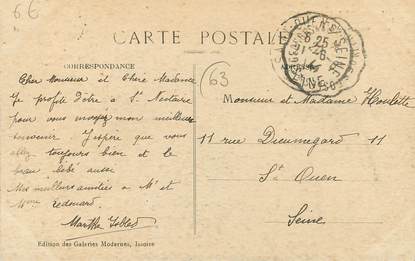 66
CARTE POSTALE
CORRESPONDANCE
Cher Monsieur et Chère Madame
Je profite d'être à St. Nectaire
pour vous envoyer mon meilleur
souvenir. J'espère que vous
allez toujours bien et le
beau bébé aussi
Mes meilleurs amitiés à Mr et
Mme Redouard.
Marthe
63
Monsieur et Madame Houlette
11 rue Dieumegard 11
St Ouen
Seine
Edition des Galeries Modernes, Issoire